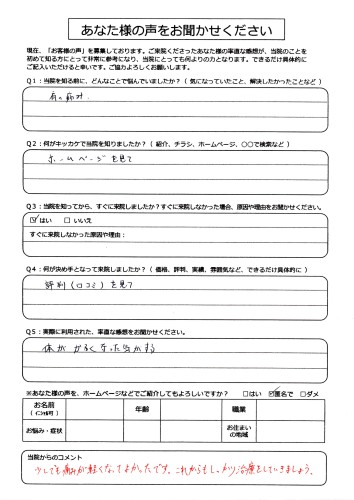 あなた様の声をお聞かせください
現在、「お客様の声」を募集しております。ご来院くださったあなた様の率直な感想が、当院のことを
初めて知る方にとって非常に参考になり、当院にとっても何よりの力となります。できるだけ具体的に
ご記入いただけると幸いです。ご協力よろしくお願いします。
Q1：当院を知る前に、どんなことで悩んでいましたか？（ 気になっていたこと、解決したかったことなど ）
肩の痛み
Q2：何がキッカケで当院を知りましたか？（ 紹介、チラシ、ホームページ、○○で検索など ）
ホームページを見て
Q3：当院を知ってから、すぐに来院しましたか？すぐに来院しなかった場合、原因や理由をお聞かせください。
☑はい □いいえ
すぐに来院しなかった原因や理由：
Q4：何が決め手となって来院しましたか？（ 価格、評判、実績、雰囲気など、できるだけ具体的に ）
評判（口コミ）を見て
Q5：実際に利用された、率直な感想をお聞かせください。
体がかるくなった気がする
※あなた様の声を、ホームページなどでご紹介してもよろしいですか？ □はい ☑匿名で □ダメ
お名前 年齢 職業
（ｲﾆｼｬﾙ可）
お悩み・症状 お住まい
の地域
当院からのコメント
少しでも痛みが軽くなってよかったです。これからもしっかり治療をしていきましょう。